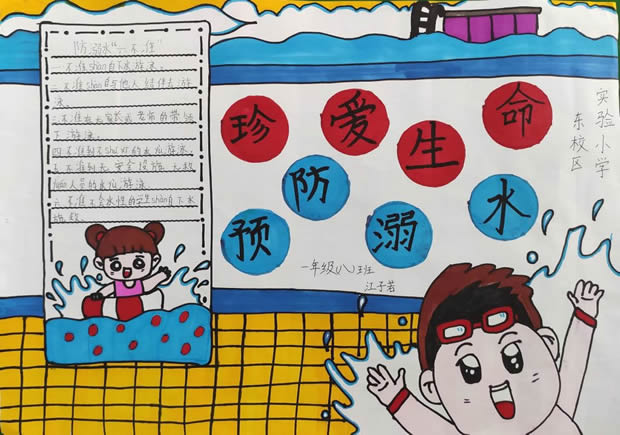 防溺水"六不准"
一不准shàn自下水游泳。
二不准shàn自与他人结伴去游
泳。
三不准在无家长或老师的带领
下游泳。
四不准到不shú xī的水域游泳
五不准到无安全设施、无救
yuán人员的水域游泳
六不准不会水性的学生shàn自下水
施救。
珍爱生命
预防溺水
实验小学
东校区
一年级(八)班
江子若